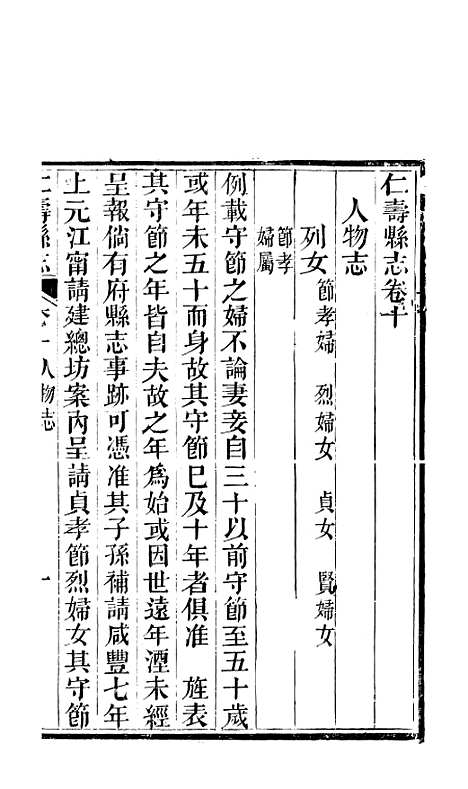 仁壽縣志卷十
人物志
列女 節孝婦 烈婦女 貞女 賢婦女
節孝
婦屬
例載守節之婦不論妻妾自三十以前守節至五十歲
或年未五十而身故其守節已及十年者俱准 旌表
其守節之年皆自夫故之年為始或因世遠年湮未經
呈報倘有府縣志事跡可憑准其子孫補請咸豐七年
上元江甯請建總坊案內呈請貞孝節烈婦女其守節
仁壽縣志 卷十人物志 一